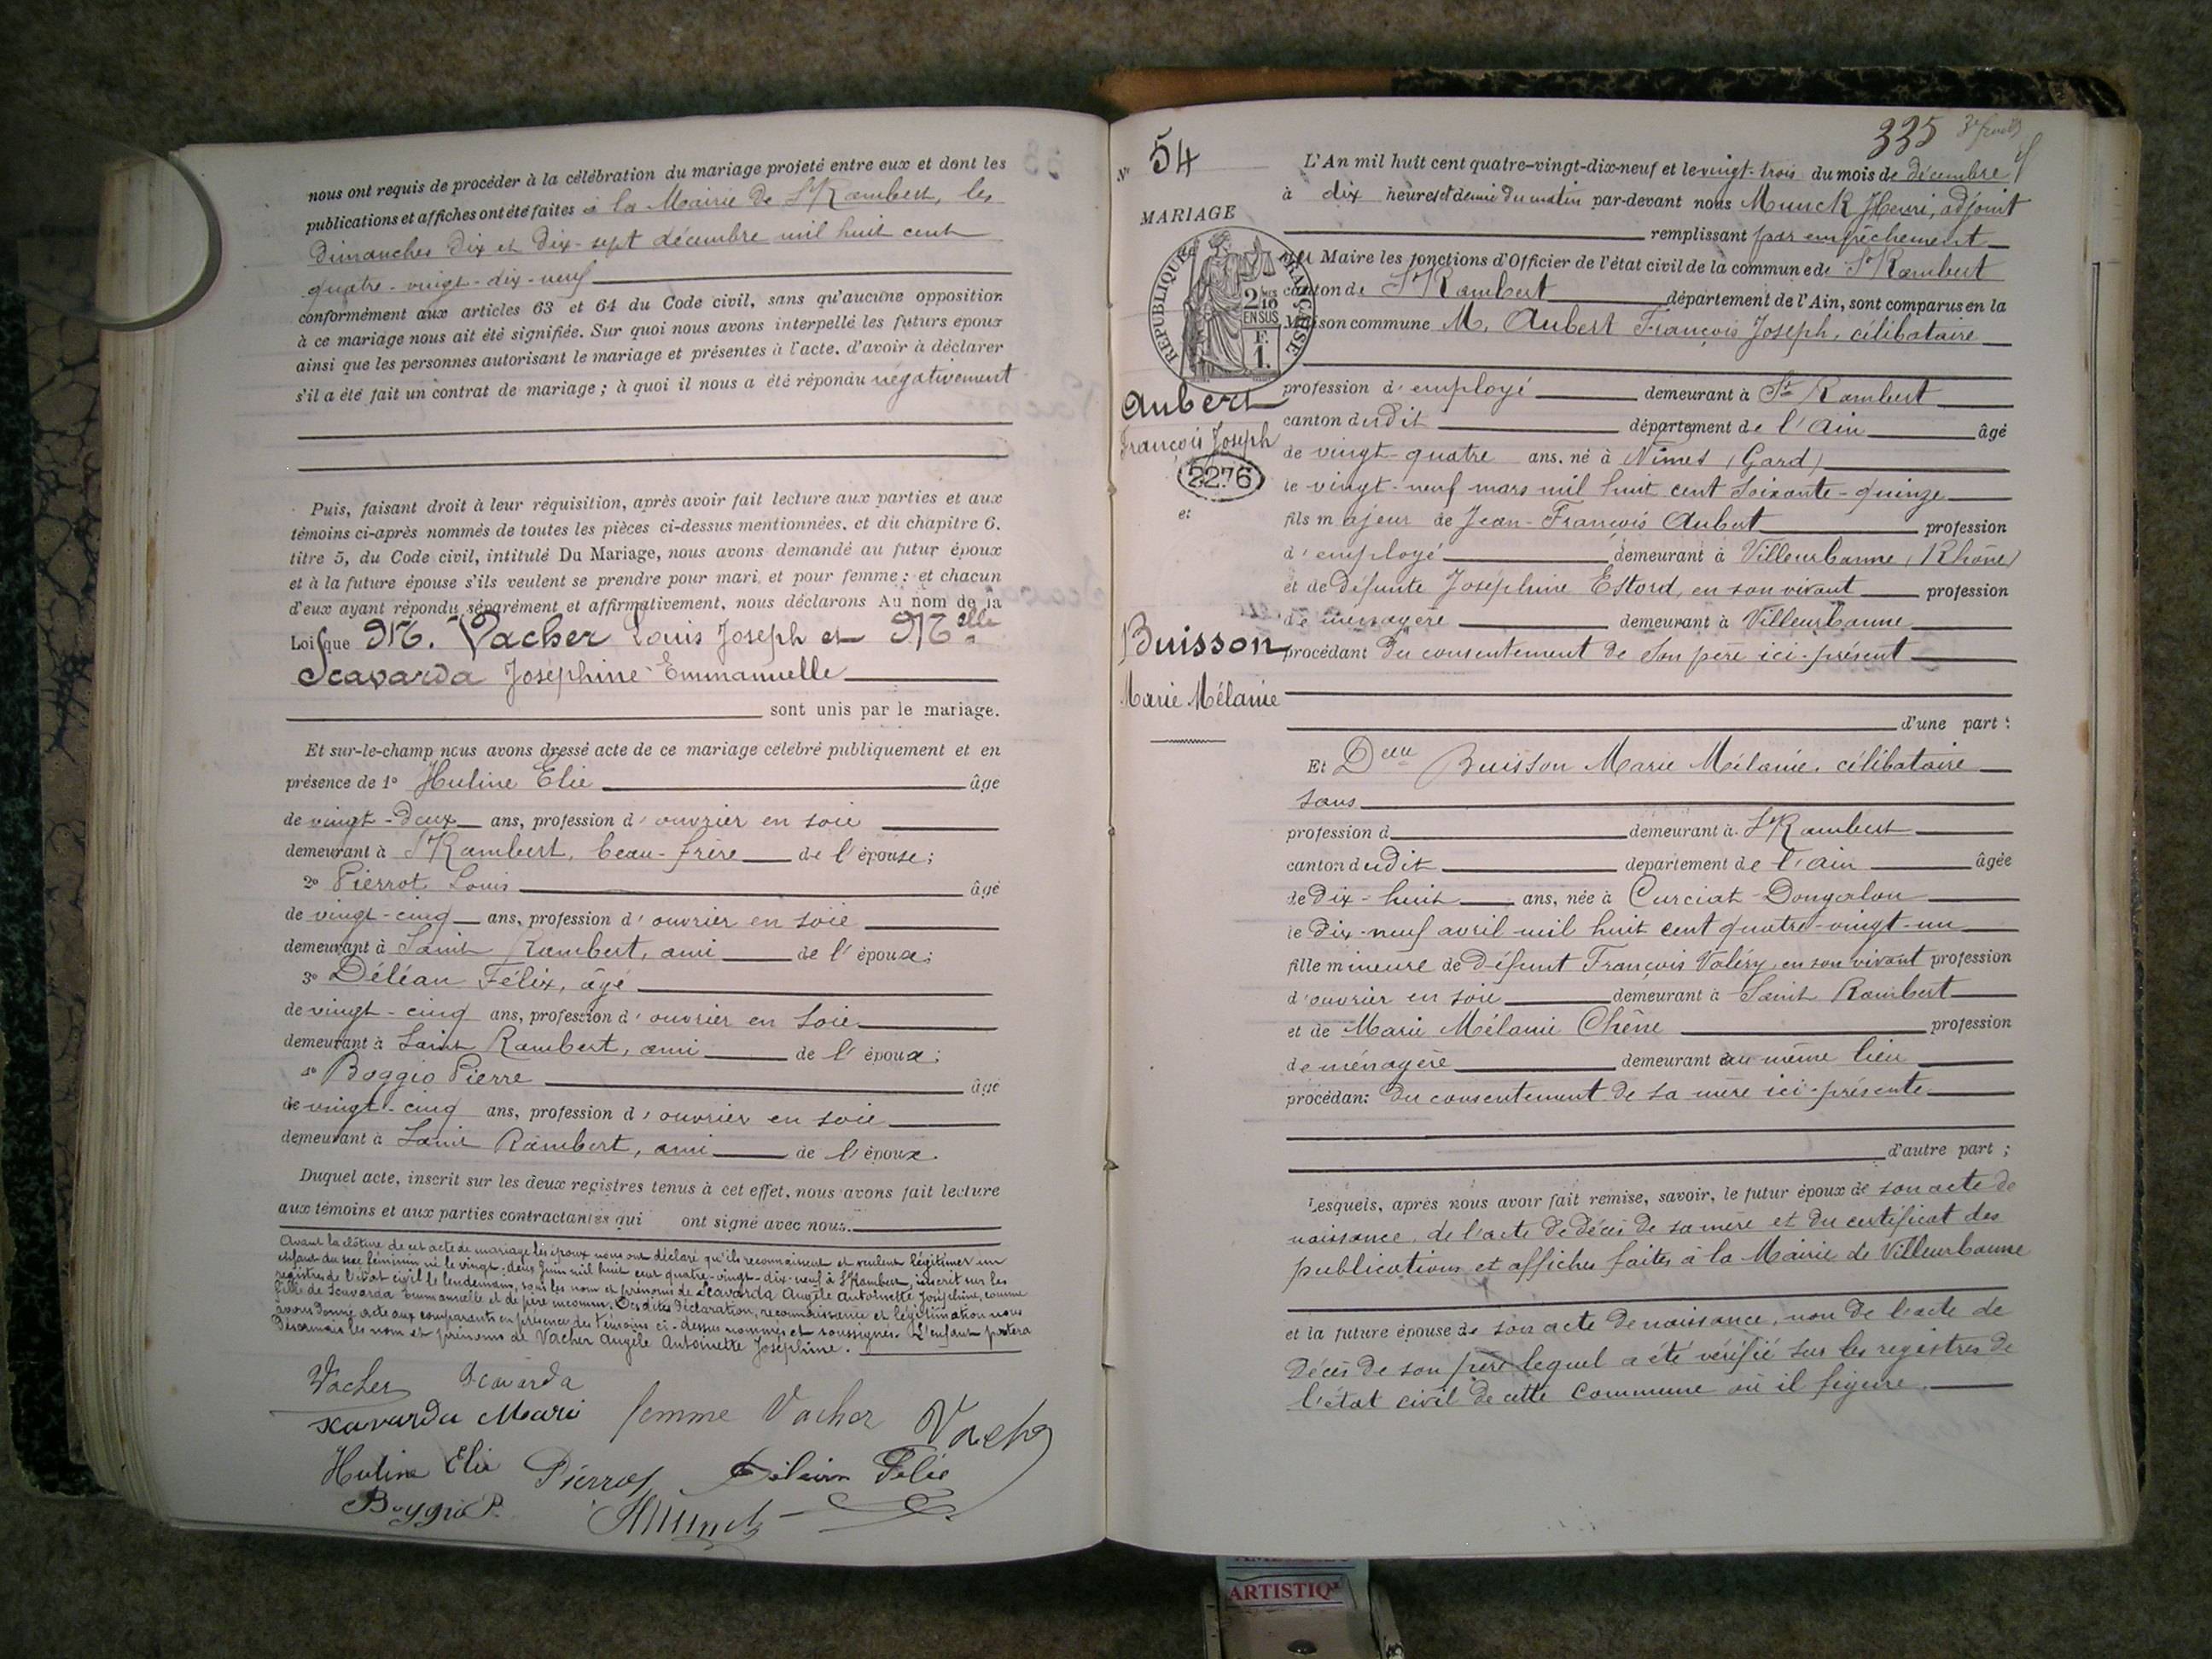 nous ont requis de procéder à la célébration du mariage projeté entre eux et dont les
publications et affiches ont été faites à la Mairie de St Rambert, les
dimanches dix et dix-sept décembre mil huit cent
quatre-vingt-dix-neuf
conformément aux articles 63 et 64 du Code civil, sans qu'aucune opposition
à ce mariage nous ait été signifiée. Sur quoi nous avons interpellé les futurs époux
ainsi que les personnes autorisant le mariage et présentes à l'acte, d'avoir à déclarer
s'il a été fait un contrat de mariage ; à quoi il nous a été répondu négativement
Puis, faisant droit à leur réquisition, après avoir fait lecture aux parties et aux
témoins ci-après nommés de toutes les pièces ci-dessus mentionnées, et du chapitre 6,
titre 5, du Code civil, intitulé Du Mariage, nous avons demandé au futur époux
et à la future épouse s'ils veulent se prendre pour mari et pour femme : et chacun
d'eux ayant répondu séparément et affirmativement, nous déclarons Au nom de la
Loi que M. Vacher Louis Joseph et Melle
Scavarda Joséphine Emmanuelle
sont unis par le mariage.
Et sur-le-champ nous avons dressé acte de ce mariage célébré publiquement et en
présence de 1° Huline Elie âgé
de vingt-deux ans, profession d'ouvrier en soie
demeurant à St Rambert, beau-frère de l'épouse ;
2° Pierrot Louis âgé
de vingt-cinq ans, profession d'ouvrier en soie
demeurant à Saint Rambert, ami de l'époux ;
3° Déléan Félix, âgé
de vingt-cinq ans, profession d'ouvrier en soie
demeurant à Saint Rambert, ami de l'époux ;
4° Boggio Pierre âgé
de vingt-cinq ans, profession d'ouvrier en soie
demeurant à Saint Rambert, ami de l'époux.
Duquel acte, inscrit sur les deux registres tenus à cet effet, nous avons fait lecture
aux témoins et aux parties contractantes qui ont signé avec nous.
Avant la clôture de cet acte de mariage les époux nous ont déclaré qu'ils reconnaissent et veulent légitimer un
enfant du sexe féminin né le vingt-deux Juin mil huit cent quatre-vingt-dix-neuf à St Rambert, inscrit sur les
registres de l'état civil le lendemain, sous les nom et prénoms de Scavarda Angèle Antoinette Joséphine, comme
fille de Scavarda Emmanuelle et de père inconnu. Desdites déclaration, reconnaissance et légitimation nous
avons donné acte aux comparants en présence des témoins ci-dessus nommés et soussignés. L'enfant portera
désormais les nom et prénoms de Vacher Angèle Antoinette Joséphine.
Vacher Scavarda
Scavarda Marie femme Vacher Vacher
Huline Elie Pierrot Délean Félix
Boggio P. HMunck
335
N° 54
MARIAGE
RÉPUBLIQUE FRANÇAISE
2/10 EN SUS
F. 1.
Aubert
François Joseph
2276
et
Buisson
Marie Mélanie
L'An mil huit cent quatre-vingt-dix-neuf et le vingt-trois du mois de décembre
à dix heures et demie du matin par-devant nous Munck Henri, adjoint
remplissant par empêchement
du Maire les fonctions d'Officier de l'état civil de la commune de St Rambert
canton de St Rambert département de l'Ain, sont comparus en la
Maison commune M. Aubert François Joseph, célibataire
profession d'employé demeurant à St Rambert
canton dudit département de l'Ain âgé
de vingt-quatre ans, né à Nîmes (Gard)
le vingt-neuf mars mil huit cent soixante-quinze
fils majeur de Jean-François Aubert profession
d'employé demeurant à Villeurbanne (Rhône)
et de défunte Joséphine Estord, en son vivant profession
de ménagère demeurant à Villeurbanne
procédant du consentement de son père ici-présent
d'une part :
Et Delle Buisson Marie Mélanie, célibataire
sans
profession d demeurant à St Rambert
canton dudit département de l'Ain âgée
de dix-huit ans, née à Curciat-Dongalon
le dix-neuf avril mil huit cent quatre-vingt-un
fille mineure de défunt François Valéry, en son vivant profession
d'ouvrier en soie demeurant à Saint Rambert
et de Marie Mélanie Chêne profession
de ménagère demeurant au même lieu
procédant du consentement de sa mère ici-présente
d'autre part ;
Lesquels, après nous avoir fait remise, savoir, le futur époux de son acte de
naissance, de l'acte de décès de sa mère et du certificat des
publications et affiches faites à la Mairie de Villeurbanne
et la future épouse de son acte de naissance, non de l'acte de
décès de son père lequel a été vérifié sur les registres de
l'état civil de cette commune où il figure.
ARTISTIQ